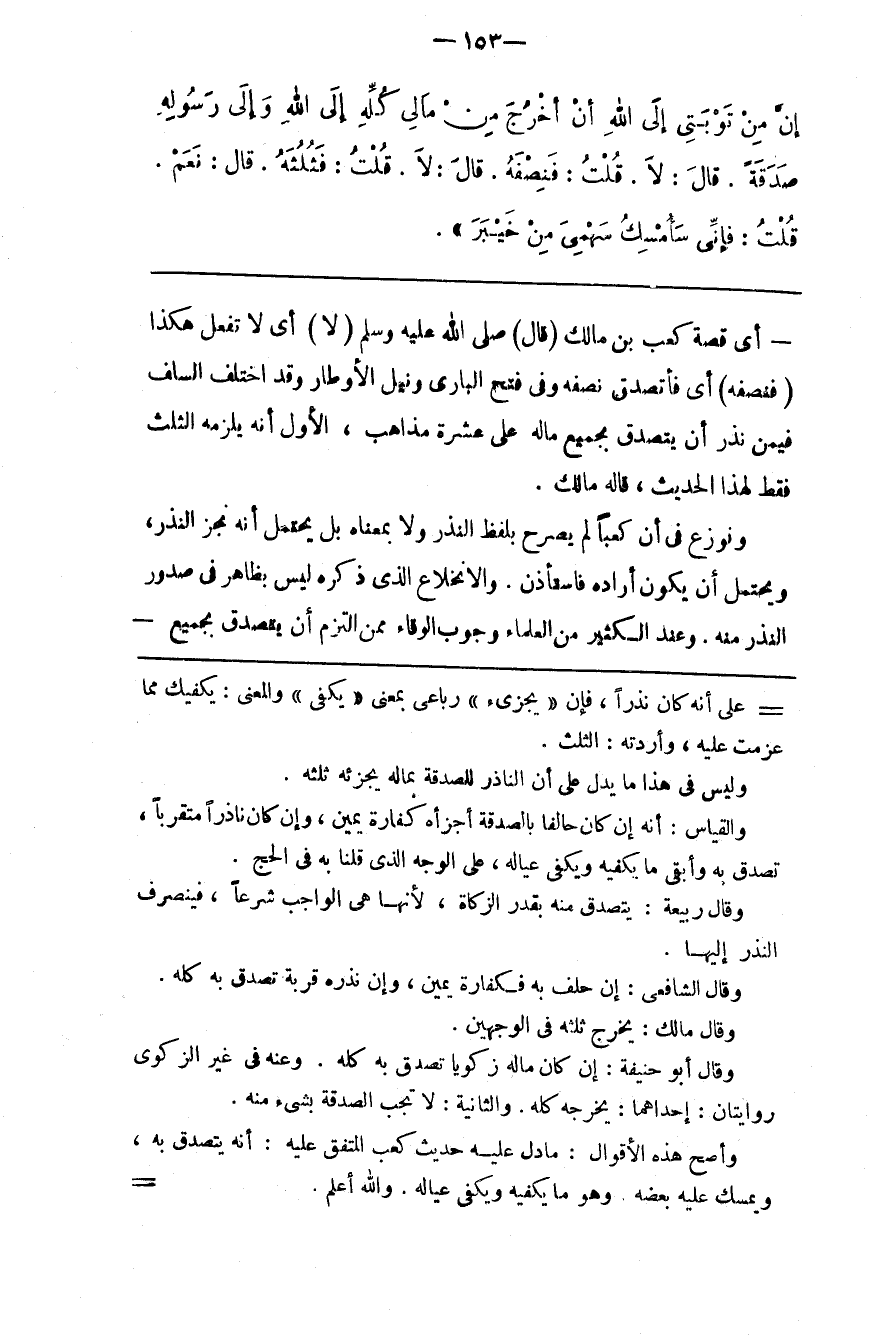 — ١٥٣ —
إنَّ مِنْ تَوْبَتِي إلَى اللهِ أنْ أخْرُجَ مِنْ مَالِي كُلِّهِ إلَى اللهِ وَإلَى رَسُولِهِ
صَدَقَةً . قالَ : لاَ . قُلْتُ : فَنِصْفَهُ . قالَ : لاَ . قُلْتُ : فَثُلُثَهُ . قال : نَعَمْ .
قُلْتُ : فإنِّى سَأُمْسِكُ سَهْمِىَ مِنْ خَيْبَرَ » .
— أى قصة كعب بن مالك (قال) صلى الله عليه وسلم (لا) أى لا تفعل هكذا
( فنصفه) أى فأتصدق نصفه وفى فتح البارى ونيل الأوطار وقد اختلف السلف
فيمن نذر أن يتصدق بجميع ماله على عشرة مذاهب ، الأول أنه يلزمه الثلث
فقط لهذا الحديث ، قاله مالك .
ونوزع فى أن كعباً لم يصرح بلفظ النذر ولا بمعناه بل يحتمل أنه نجز النذر،
ويحتمل أن يكون أراده فاستأذن . والانخلاع الذى ذكره ليس بظاهر فى صدور
النذر منه . وعند الكثير من العلماء وجوب الوفاء ممن التزم أن يتصدق بجميع —
= على أنه كان نذراً ، فإن « يجزىء » رباعى بمعنى « يكفى » والمعنى : يكفيك مما
عزمت عليه ، وأردته : الثلث .
وليس فى هذا ما يدل على أن الناذر للصدقة بماله يجزئه ثلثه .
والقياس : أنه إن كان حالفا بالصدقة أجزأه كفارة يمين ، وإن كان ناذراً متقرباً ،
تصدق به وأبقى ما يكفيه ويكفى عياله ، على الوجه الذى قلنا به فى الحج .
وقال ربيعة : يتصدق منه بقدر الزكاة ، لأنها هى الواجب شرعاً ، فينصرف
النذر إليها .
وقال الشافعى : إن حلف به فكفارة يمين ، وإن نذره قربة تصدق به كله .
وقال مالك : يخرج ثلثه فى الوجهين .
وقال أبو حنيفة : إن كان ماله زكويا تصدق به كله . وعنه فى غير الزكوى
روايتان : إحداهما : يخرجه كله . والثانية : لا تجب الصدقة بشىء منه .
وأصح هذه الأقوال : مادل عليه حديث كعب المتفق عليه : أنه يتصدق به ،
ويمسك عليه بعضه . وهو ما يكفيه ويكفى عياله . والله أعلم . =